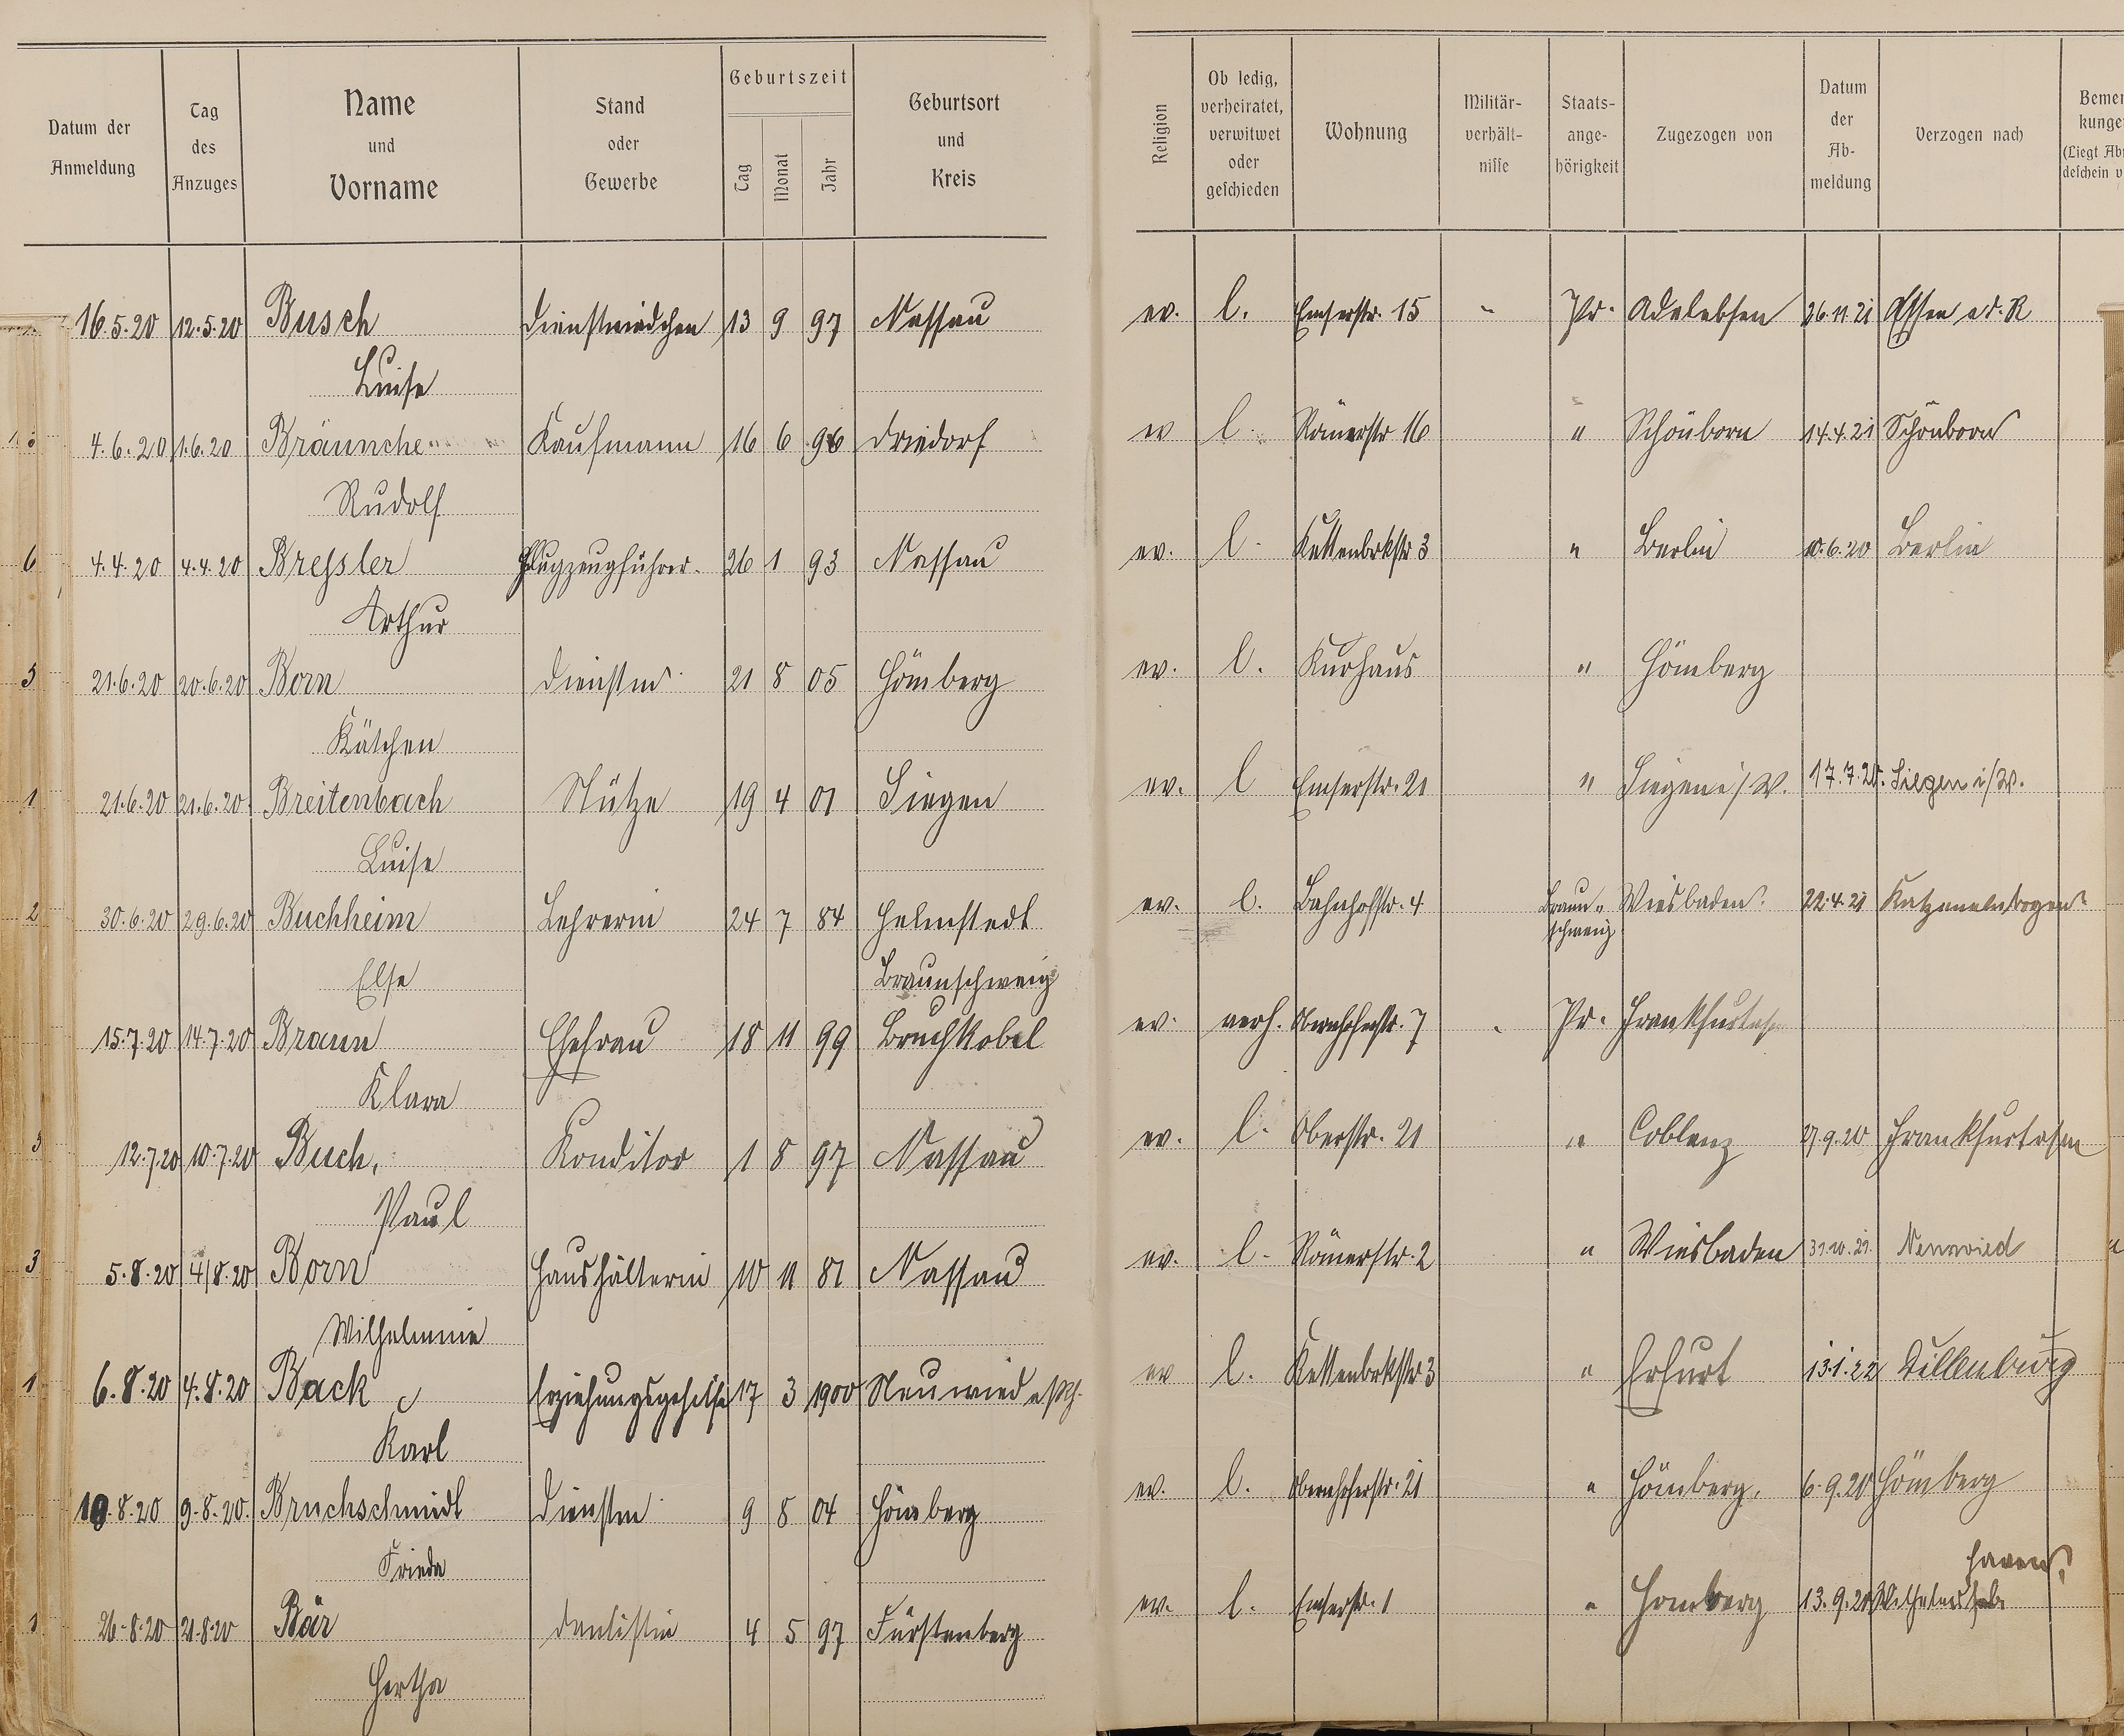 Datum der Anmeldung | Tag des Anzuges | Name und Vorname | Stand oder Gewerbe | Geburtszeit Tag Monat Jahr | Geburtsort und Kreis | Religion | Ob ledig, verheiratet, verwitwet oder geschieden | Wohnung | Militär-verhält-nisse | Staats-ange-hörigkeit | Zugezogen von | Datum der Ab-meldung | Verzogen nach
16.5.20 12.5.20 Busch Dienstmädchen 13 9 97 Nassau ev. l. Emserstr. 15 - Pr. Adelebsen 26.11.21 Essen a d. R
Luise
4.6.20 1.6.20 Bräunche Kaufmann 16 6 96 Driedorf ev l. Römerstr 16 " Schönborn 14.4.21 Schönborn
Rudolf
6 4.4.20 4.4.20 Bressler Flugzeugführer. 26 1 93 Nassau ev. l. Kettenbrkstr 3 " Berlin 10.6.20 Berlin
Arthur
21.6.20 20.6.20 Born Dienstm. 21 8 05 Hömberg ev. l. Kurhaus " Hömberg
Kätchen
1 21.6.20 21.6.20. Breitenbach Stütze 19 4 01 Siegen ev. l Emserstr. 21 " Siegen i/W. 17.7.20. Siegen i/W.
Luise
2 30.6.20 29.6.20 Buchheim Lehrerin 24 7 84 Helmstedt ev. l. Bahnhofstr. 4 Braun- Wiesbaden. 22.4.21 Katzenelnbogen
schweig
Else Braunschweig
15.7.20 14.7.20 Braun Ehefrau 18 11 99 Bruchköbel ev. verh. Obernhoferstr. 7 - Pr. Frankfurt a/m
Klara
12.7.20 10.7.20 Buch, Konditor 1 8 97 Nassau ev. l. Oberstr. 21 " Coblenz 27.9.20 Frankfurt a/m
Paul
3 5.8.20 4/8.20 Born Haushälterin 10 11 81 Nassau ev. l. Römerstr. 2 " Wiesbaden 31.10.21. Neuwied "
Wilhelmine
1 6.8.20 4.8.20 Back Erziehungsgehilfe 17 3 1900 Neuwied a/Rh. ev l. Kettenbrkstr 3 " Erfurt 13.1.22 Dillenburg
Karl
10.8.20 9.8.20. Bruchschmidt Dienstm. 9 8 04 Hömberg ev. l. Obernhoferstr. 21 " Hömberg. 6.9.20 Hömberg
Frieda
haven
1 26.8.20 21.8.20 Bär Dentistin 4 5 97 Fürstenberg ev. l. Emserstr. 1 " Homberg 13.9.20 Wilhelms
Hertha